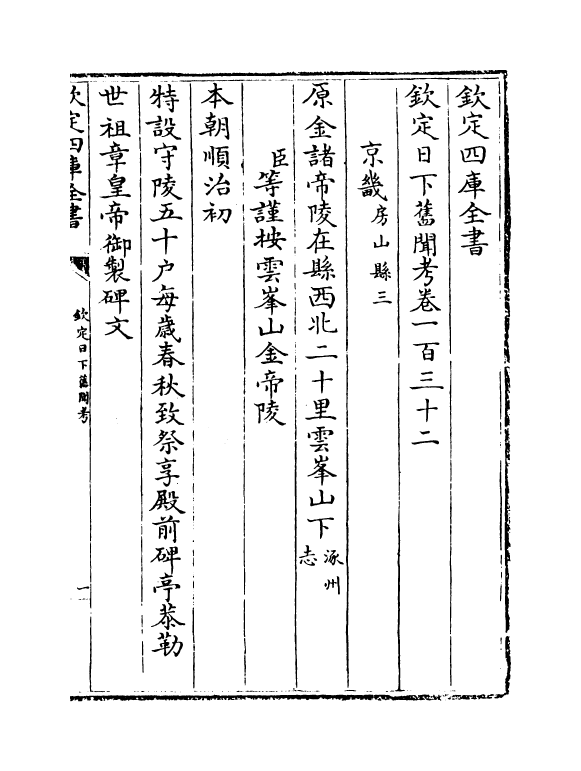 欽定四庫全書
欽定日下舊聞考卷一百三十二
京畿房山縣三
原金諸帝陵在縣西北二十里雲峯山下涿州志
臣等謹按雲峯山金帝陵
本朝順治初
特設守陵五十户每歲春秋致祭享殿前碑亭恭勒
世祖章皇帝御製碑文
欽定四庫全書
欽定日下舊聞考
一